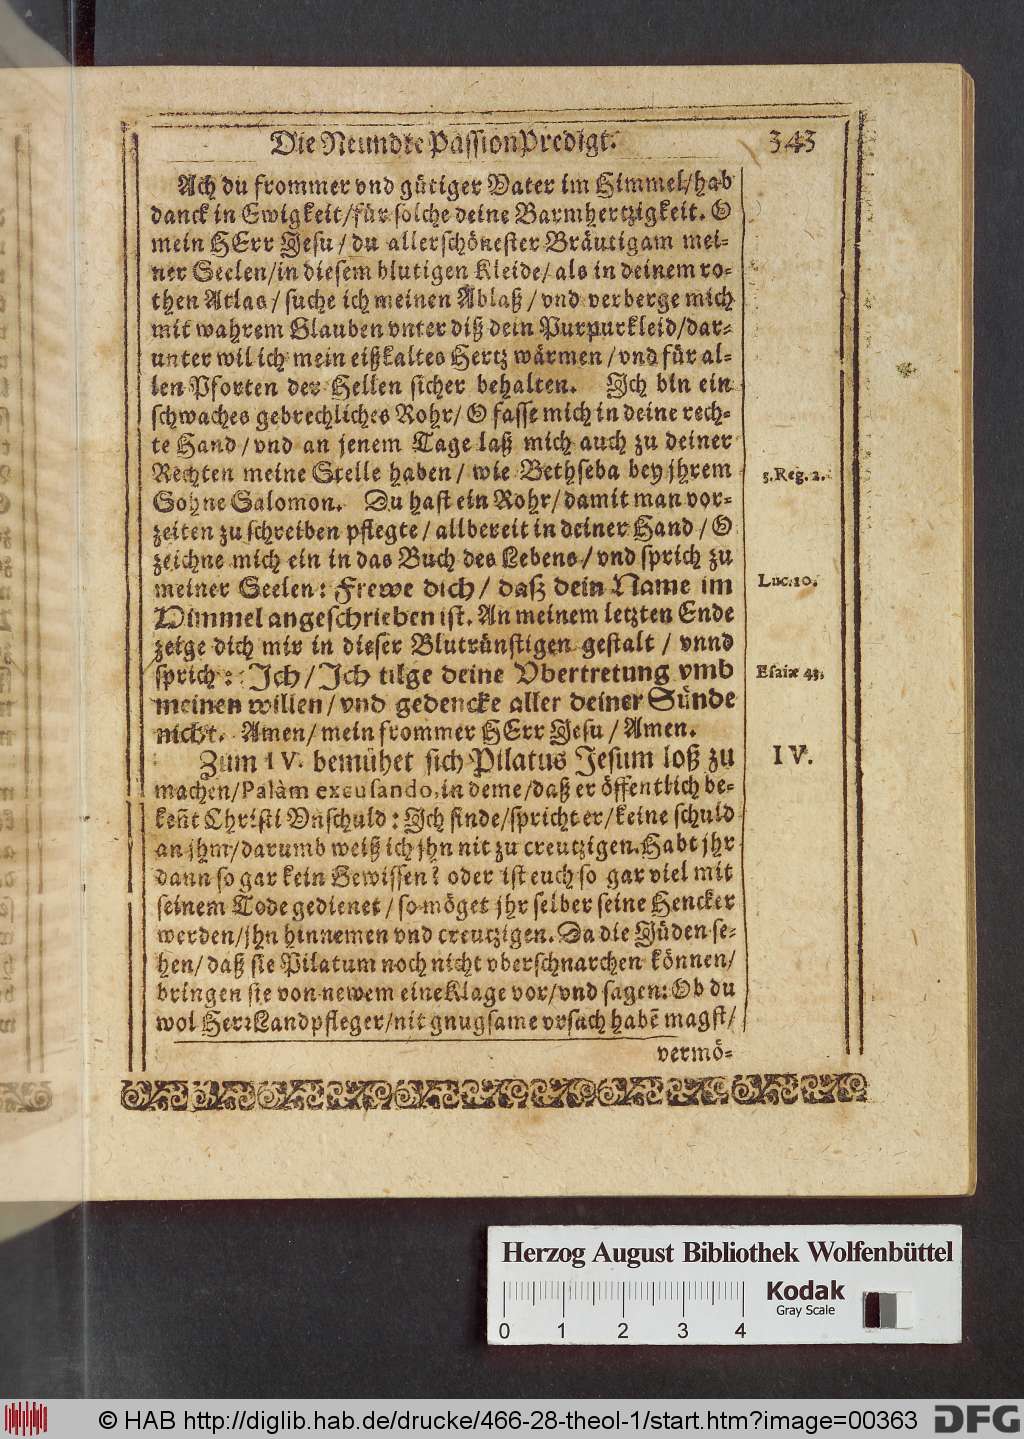 Die Neundte PassionPredigt. 343
Ach du frommer vnd gütiger Vater im Himmel/hab
danck in Ewigkeit/für solche deine Barmhertzigkeit. O
mein HErr Jesu/du allerschönester Bräutigam mei-
ner Seelen/in diesem blutigen Kleide/als in deinem ro-
then Atlas/ suche ich meinen Ablaß/vnd verberge mich
mit wahrem Glauben vnter diß dein Purpurkleid/dar-
unter wil ich mein eißkaltes Hertz wärmen/vnd für al-
len Pforten der Hellen sicher behalten. Ich bin ein
schwaches gebrechliches Rohr/ O fasse mich in deine rech-
te Hand/vnd an jenem Tage laß mich auch zu deiner
Rechten meine Stelle haben/ wie Bethseba bey jhrem
3.Reg. 2.
Sohne Salomon. Du hast ein Rohr/damit man vor-
zeiten zu schreiben pflegte/allbereit in deiner Hand/ O
zeichne mich ein in das Buch des Lebens/vnd sprich zu
meiner Seelen: Frewe dich/ daß dein Name im
Luc. 10.
Himmel angeschrieben ist. An meinem letzten Ende
zeige dich mir in dieser Blutrünstigen gestalt/ vnnd
sprich: Ich/Ich tilge deine Vbertretung vmb
Esaiæ 43.
meinen willen/vnd gedencke aller deiner Sünde
nicht. Amen/mein frommer HErr Jesu/Amen.
Zum IV. bemühet sich Pilatus Jesum loß zu
IV.
machen/Palàm excusando, in deme/daß er öffentlich be-
keñt Christi Vnschuld: Ich finde/spricht er/keine schuld
an jhm/darumb weiß ich jhn nit zu creutzigen. Habt jhr
dann so gar kein Gewissen? oder ist euch so gar viel mit
seinem Tode gedienet/so möget jhr selber seine Hencker
werden/jhn hinnemen vnd creutzigen. Da die Jüden se-
hen/daß sie Pilatum noch nicht vberschnarchen können/
bringen sie von newem eine Klage vor/vnd sagen: Ob du
wol Herr Landpfleger/nit gnugsame vrsach habẽ magst/
vermö-
Herzog August Bibliothek Wolfenbüttel
Kodak
Gray Scale
0 1 2 3 4
© HAB http://diglib.hab.de/drucke/466-28-theol-1/start.htm?image=00363
DFG